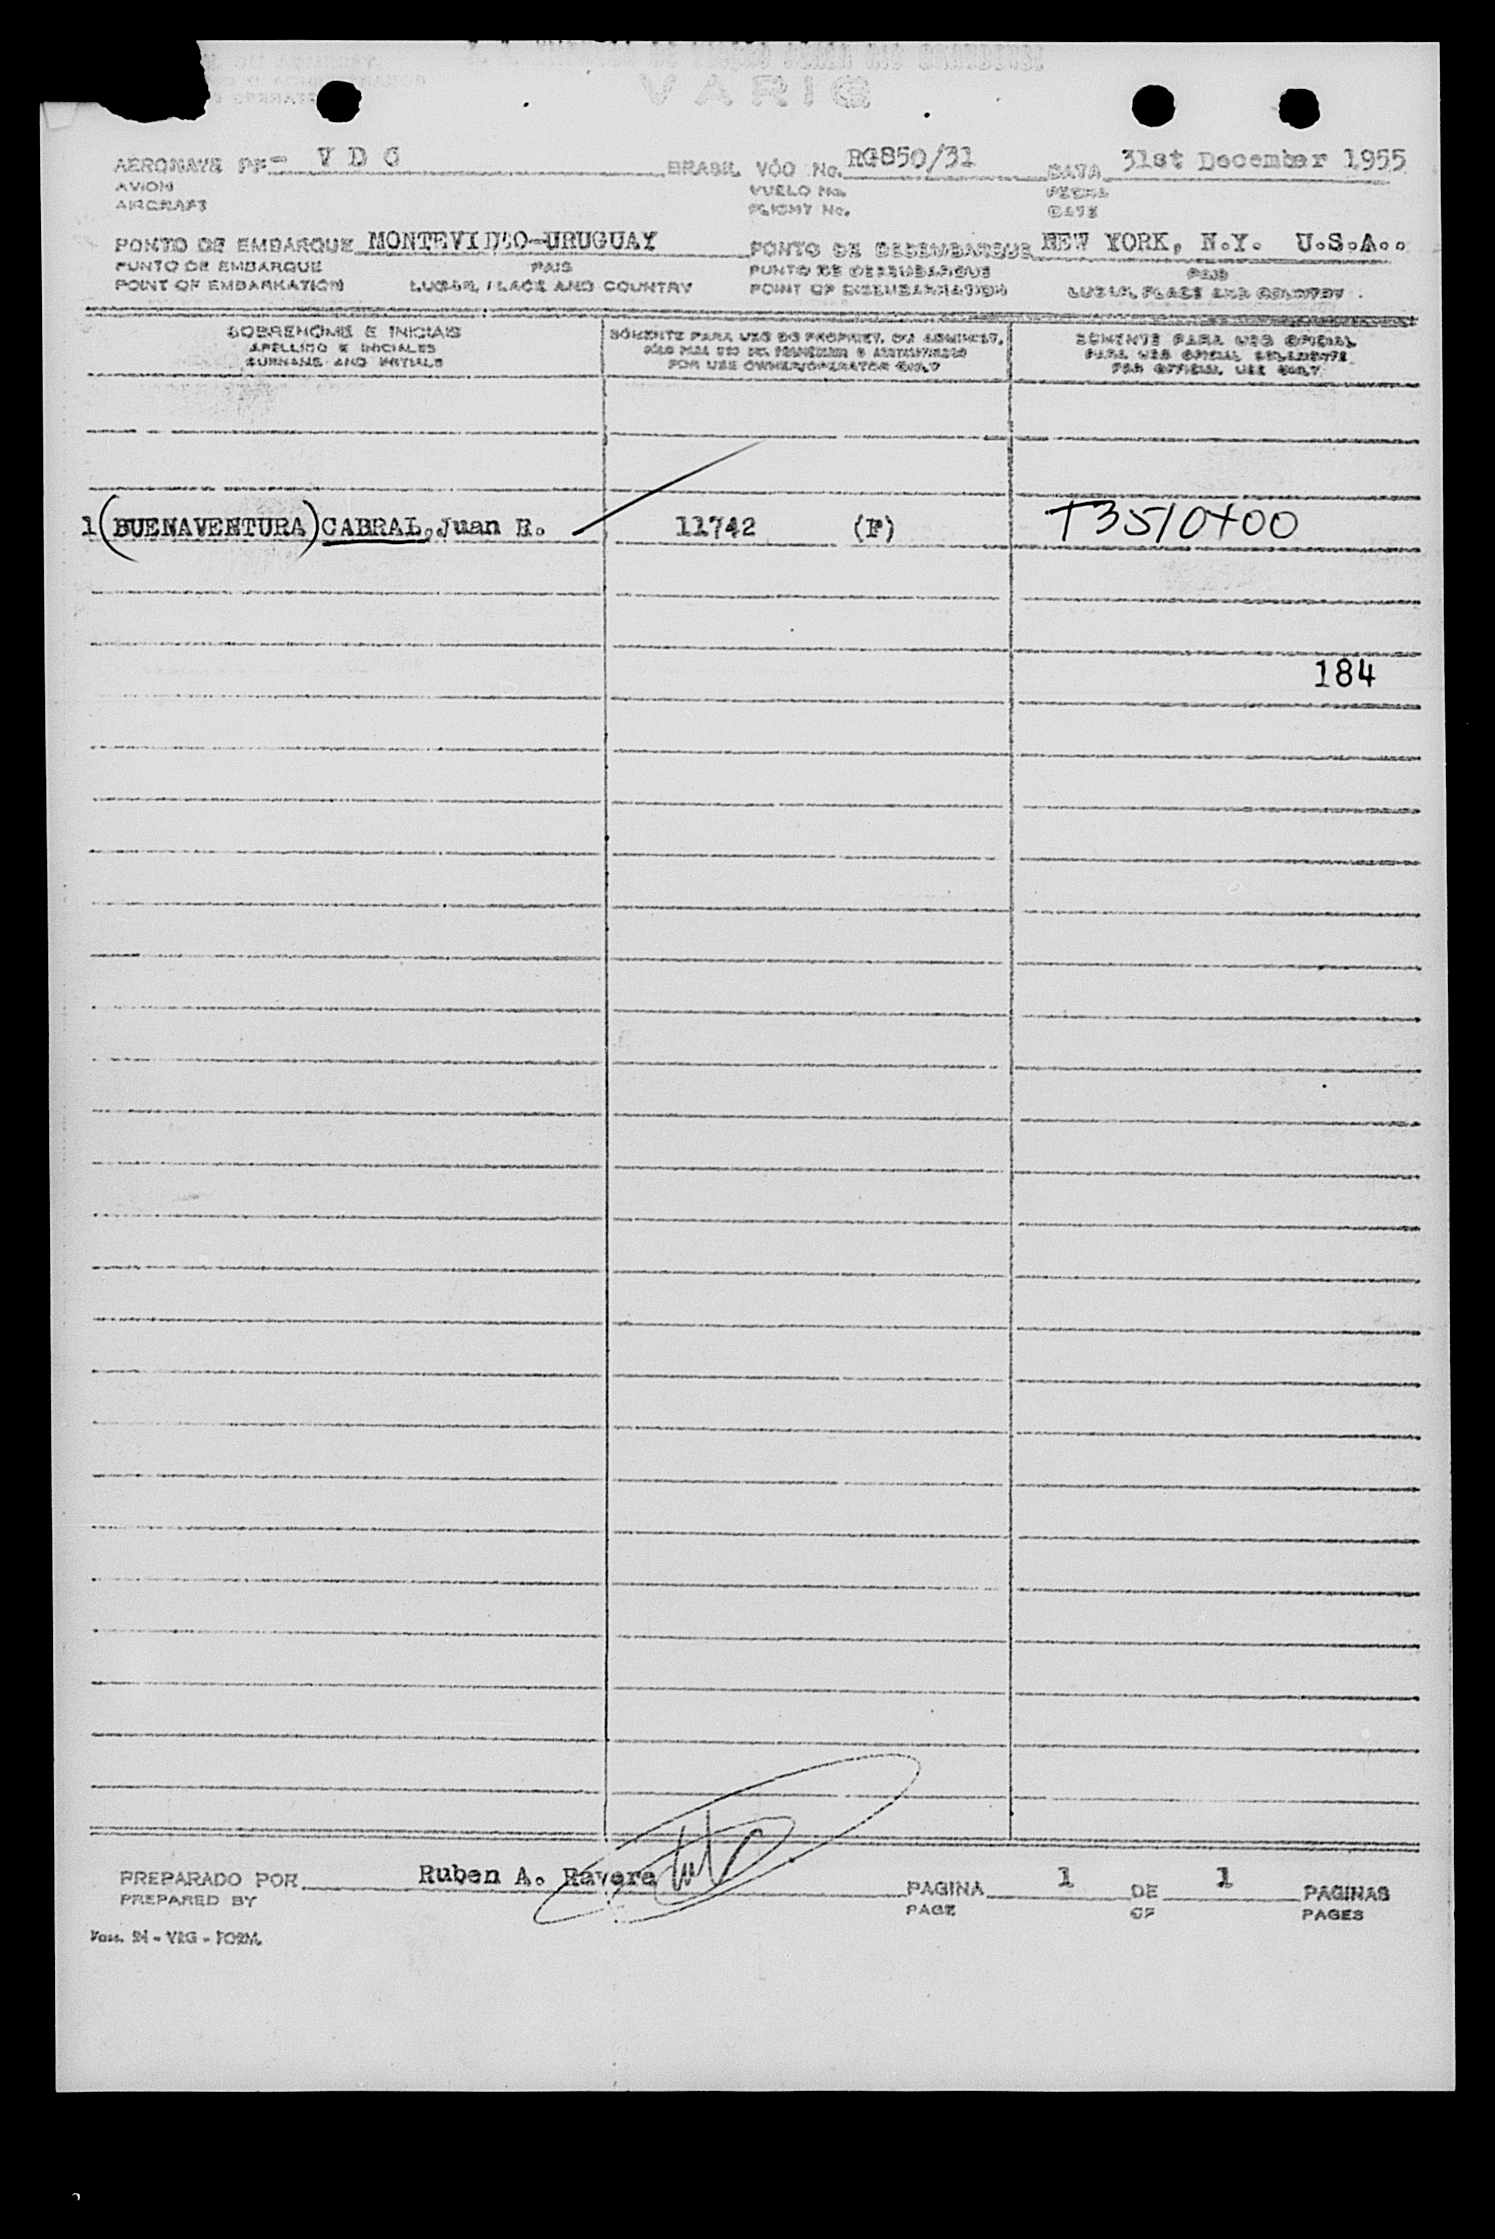 VARIG
AERONAVE PP- V D G BRASIL VÔO No. RG850/31 DATA 31st December 1955
AVION VUELO No. FECHA
AIRCRAFT FLIGHT No. DATE
PONTO DE EMBARQUE MONTEVIDEO-URUGUAY PONTO DE DESEMBARQUE NEW YORK, N.Y. U.S.A..
PUNTO DE EMBARQUE PAIS PUNTO DE DESEMBARQUE PAIS
POINT OF EMBARKATION LUGAR, PLACE AND COUNTRY POINT OF DISEMBARKATION LUGAR, PLACE AND COUNTRY
SOBRENOME E INICIAIS SÓMENTE PARA USO DO PROPRIET. OU ADMINIST. SOMENTE PARA USO OFICIAL
APELLIDO E INICIALES PARA USO OFICIAL SOLAMENTE
SURNAME AND INITIALS FOR USE OWNER/OPERATOR ONLY FOR OFFICIAL USE ONLY
1 (BUENAVENTURA) CABRAL, Juan R. 11742 (F) T3510400
184
PREPARADO POR Ruben A. Ravera PAGINA 1 DE 1 PAGINAS
PREPARED BY PAGE OF PAGES
24 - VRG - FORM.